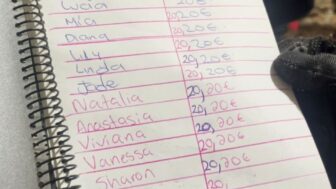 Lucia 20,20€
Mia 20,20€
Diana 20,20€
Lily 20,20€
Linda 20,20€
Jade 20,20€
Natalia 20,20€
Anastasia 20,20€
Viviana 20,20€
Vanessa 20,20€
Sharon 20,